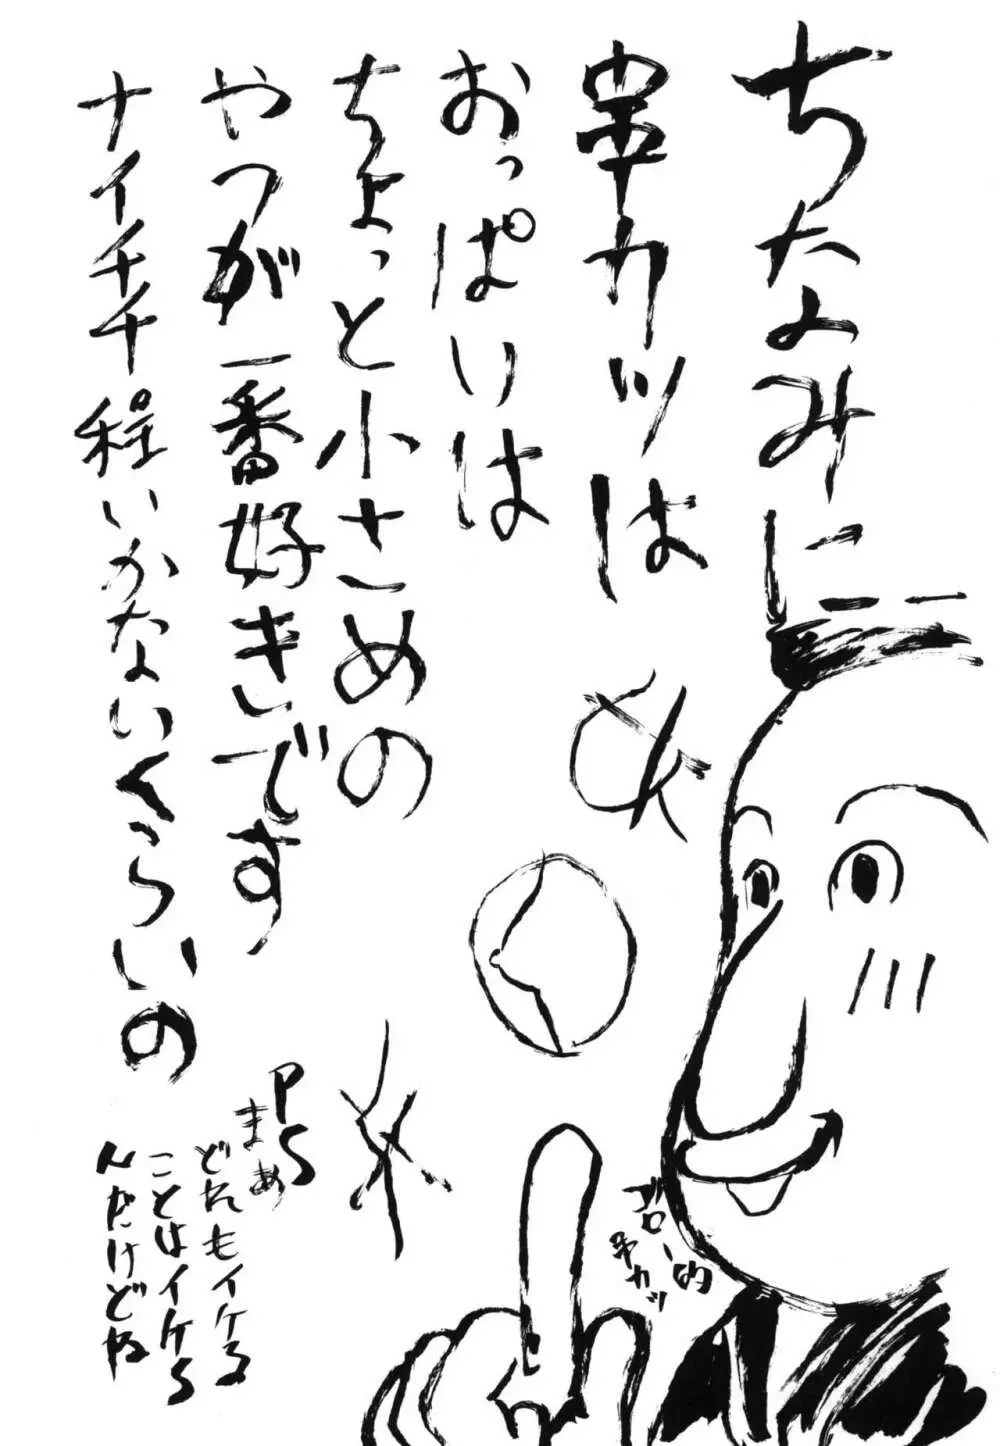 ちなみに
串カツは
おっぱいは
ちょっと小さめの
やつが一番好きです
ナイチチ程いかないくらいの
PS
まあ
どれもイケる
ことはイケる
んだけどね
串カツ